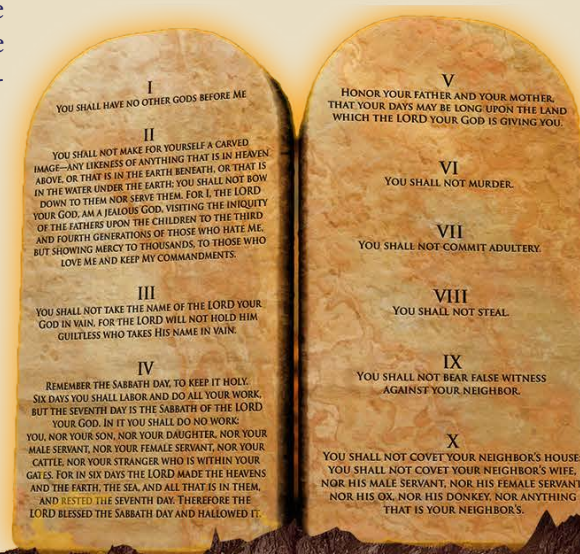 I
YOU SHALL HAVE NO OTHER GODS BEFORE ME
II
YOU SHALL NOT MAKE FOR YOURSELF A CARVED
IMAGE—ANY LIKENESS OF ANYTHING THAT IS IN HEAVEN
ABOVE, OR THAT IS IN THE EARTH BENEATH, OR THAT IS
IN THE WATER UNDER THE EARTH; YOU SHALL NOT BOW
DOWN TO THEM NOR SERVE THEM. FOR I, THE LORD
YOUR GOD, AM A JEALOUS GOD, VISITING THE INIQUITY
OF THE FATHERS UPON THE CHILDREN TO THE THIRD
AND FOURTH GENERATIONS OF THOSE WHO HATE ME,
BUT SHOWING MERCY TO THOUSANDS, TO THOSE WHO
LOVE ME AND KEEP MY COMMANDMENTS.
III
YOU SHALL NOT TAKE THE NAME OF THE LORD YOUR
GOD IN VAIN, FOR THE LORD WILL NOT HOLD HIM
GUILTLESS WHO TAKES HIS NAME IN VAIN.
IV
REMEMBER THE SABBATH DAY, TO KEEP IT HOLY.
SIX DAYS YOU SHALL LABOR AND DO ALL YOUR WORK,
BUT THE SEVENTH DAY IS THE SABBATH OF THE LORD
YOUR GOD. IN IT YOU SHALL DO NO WORK:
YOU, NOR YOUR SON, NOR YOUR DAUGHTER, NOR YOUR
MALE SERVANT, NOR YOUR FEMALE SERVANT, NOR YOUR
CATTLE, NOR YOUR STRANGER WHO IS WITHIN YOUR
GATES. FOR IN SIX DAYS THE LORD MADE THE HEAVENS
AND THE EARTH, THE SEA, AND ALL THAT IS IN THEM,
AND RESTED THE SEVENTH DAY. THEREFORE THE
LORD BLESSED THE SABBATH DAY AND HALLOWED IT.
V
HONOR YOUR FATHER AND YOUR MOTHER,
THAT YOUR DAYS MAY BE LONG UPON THE LAND
WHICH THE LORD YOUR GOD IS GIVING YOU.
VI
YOU SHALL NOT MURDER.
VII
YOU SHALL NOT COMMIT ADULTERY.
VIII
YOU SHALL NOT STEAL.
IX
YOU SHALL NOT BEAR FALSE WITNESS
AGAINST YOUR NEIGHBOR.
X
YOU SHALL NOT COVET YOUR NEIGHBOR'S HOUSE
YOU SHALL NOT COVET YOUR NEIGHBOR'S WIFE,
NOR HIS MALE SERVANT, NOR HIS FEMALE SERVANT
NOR HIS OX, NOR HIS DONKEY, NOR ANYTHING
THAT IS YOUR NEIGHBOR'S.